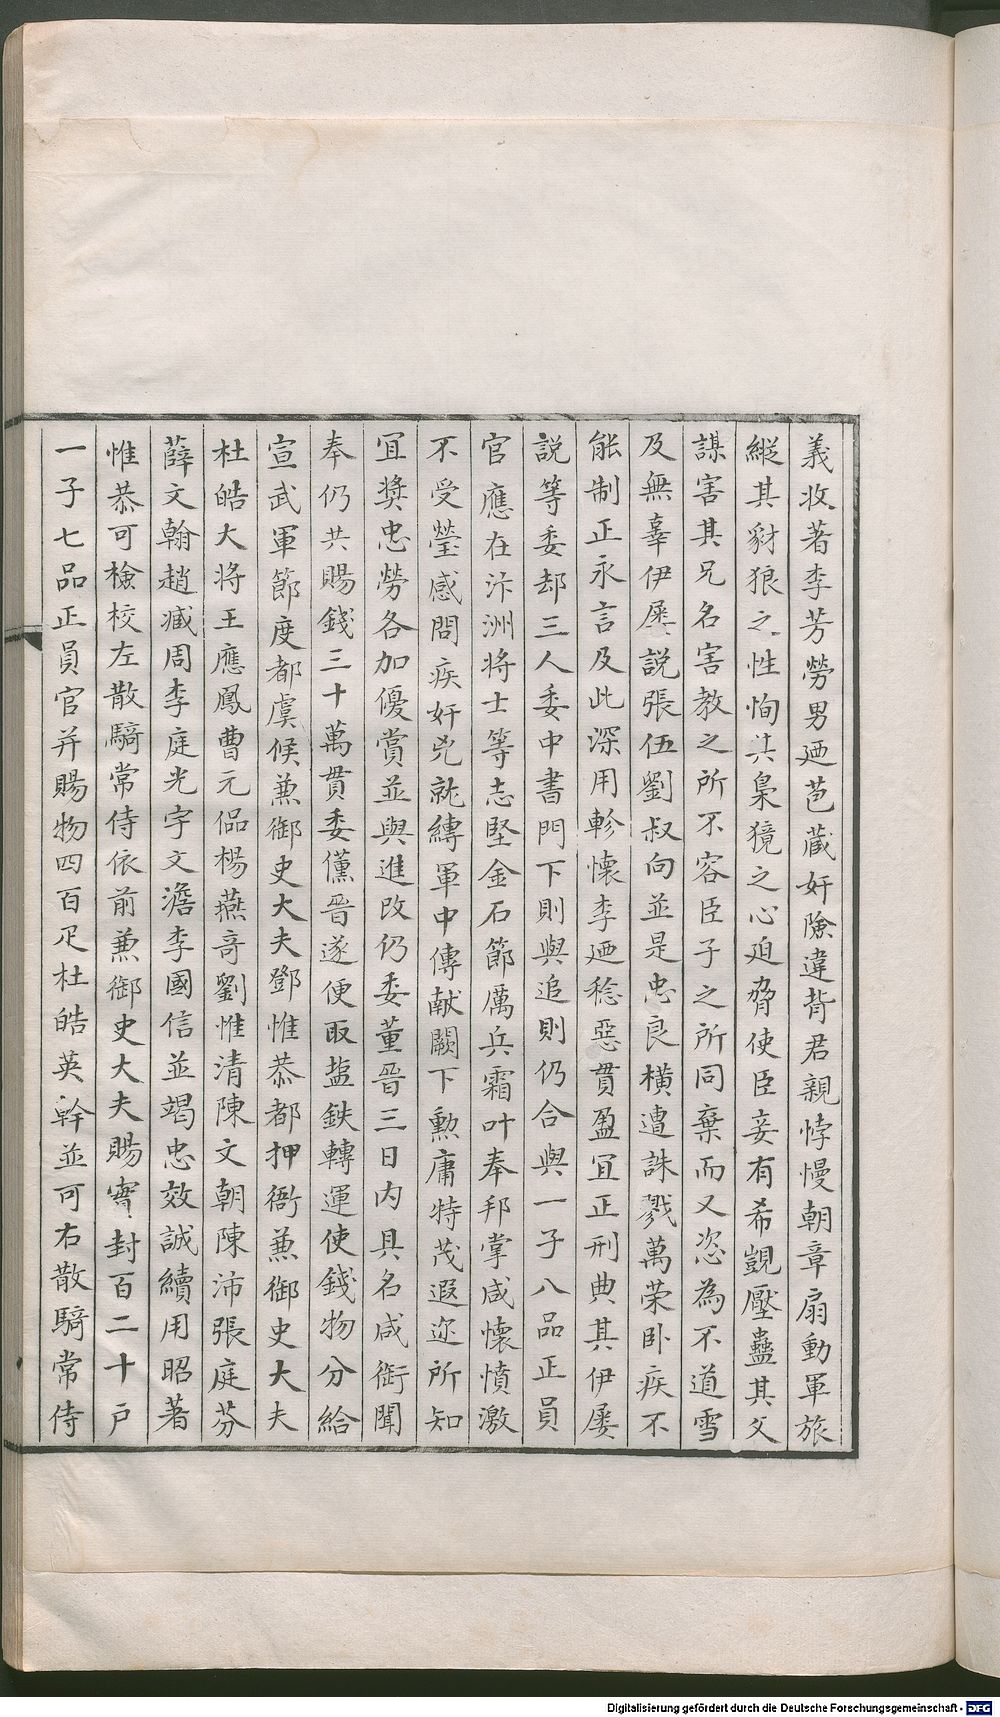 義收著李芳勞男迺苞蔵奸險違背君親悖慢朝章扇動軍旅
縱其豺狼之性恂其梟獍之心迫脅使臣妄有希覬壓蠱其父
謀害其兄名害教之所不容臣子之所同棄而又恣為不道雪
及無辜伊屍說張伍劉叔向並是忠良橫遭誅戮萬荣卧疾不
能制正永言及此深用軫懷李迺稔惡貫盈宜正刑典其伊屡
說等委却三人委中書門下則與追則仍合與一子八品正員
官應在汴洲將士等志堅金石節厲兵霜叶奉邦掌咸懷憤激
不受瑩感問疾奸兇就縳軍中傳献闕下勲庸特茂遐迩所知
宜獎忠勞各加優賞並與進改仍委董晉三日内具名咸銜聞
奉仍共賜錢三十萬貫委儻晉遂便取塩鉄轉運使錢物分給
宣武軍節度都虞候兼御史大夫鄧惟恭都押衙兼御史大夫
杜皓大將王應鳳曹元偘楊燕竒劉惟清陳文朝陳沛張庭芬
薛文翰趙臧周李庭光字文澹李國信並竭忠效誠續用昭著
惟恭可檢校左散騎常侍依前兼御史大夫賜寔封百二十户
一子七品正員官并賜物四百疋杜皓英幹並可右散騎常侍
Digitalisierung gefördert durch die Deutsche Forschungsgemeinschaft - DFG